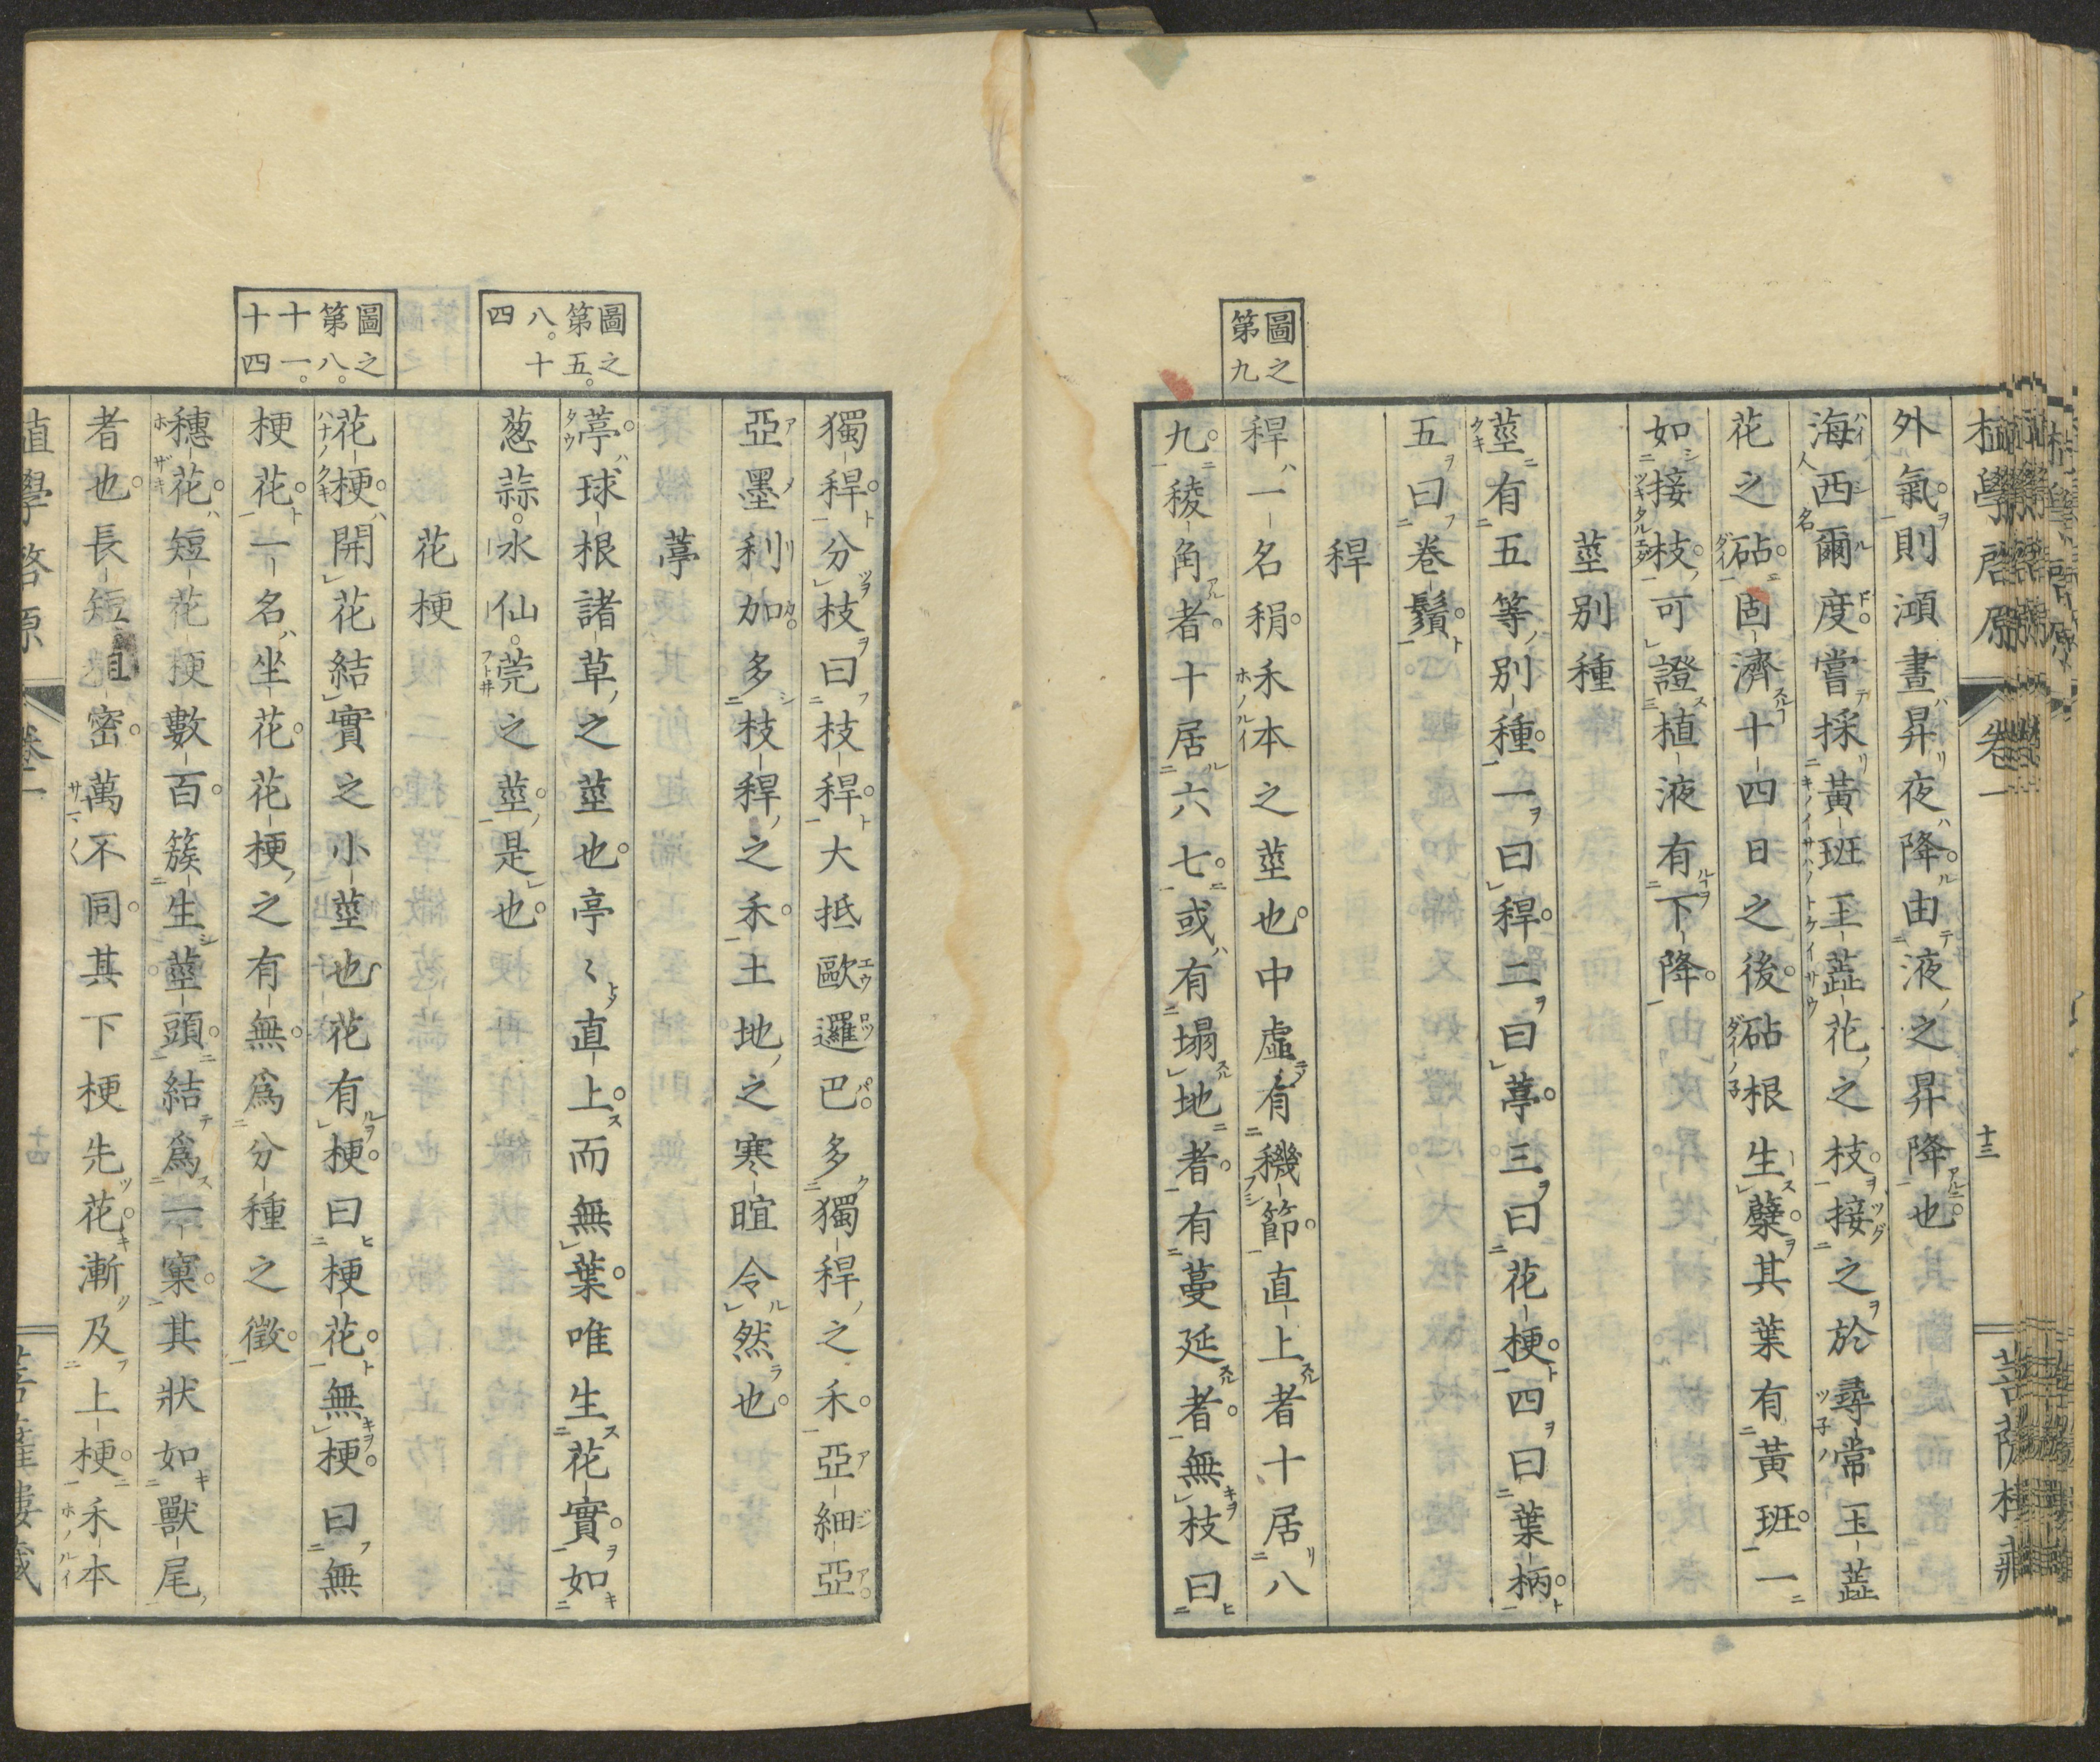 植學啓原 卷一 十三 菩薩樓藏
外氣則澒晝昇夜降由液之昇降也
海西爾度嘗採黃斑玉蕋花之枝接之於尋常玉蕋
花之砧固濟十四日之後砧根生蘖其葉有黃斑一
如接枝可證植液有下降
莖別種
莖有五等別種一曰稈二曰葶三曰花梗四曰葉柄
五曰卷鬚
稈
圖之第九
稈一名稍禾本之莖也中虛有機節直上者十居八
九稜角者十居六七或有塌地者有蔓延者無枝曰
獨稈分枝曰枝稈大抵歐邏巴多獨稈之禾亞細亞
亞墨利加多枝稈之禾土地之寒暄令然也
葶
圖之第五。八。十四
葶球根諸草之莖也亭〻直上而無葉唯生花實如
葱蒜。水仙。莞之莖是也
花梗
圖之第八。十一。十四
花梗開花結實之小莖也花有梗曰梗花無梗曰無
梗花一名坐花花梗之有無爲分種之徵
穗花短花梗數百簇生莖頭結爲一窠其狀如獸尾
者也長短粗密萬不同其下梗先花漸及上梗禾本
植學啓原 卷一 十四 菩薩樓藏